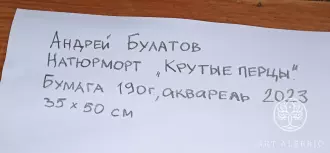 Андрей Булатов
Натюрморт „Крутые перцы".
Бумага 190г, акварель 2023
35 х 50 см
ART ALEKNID